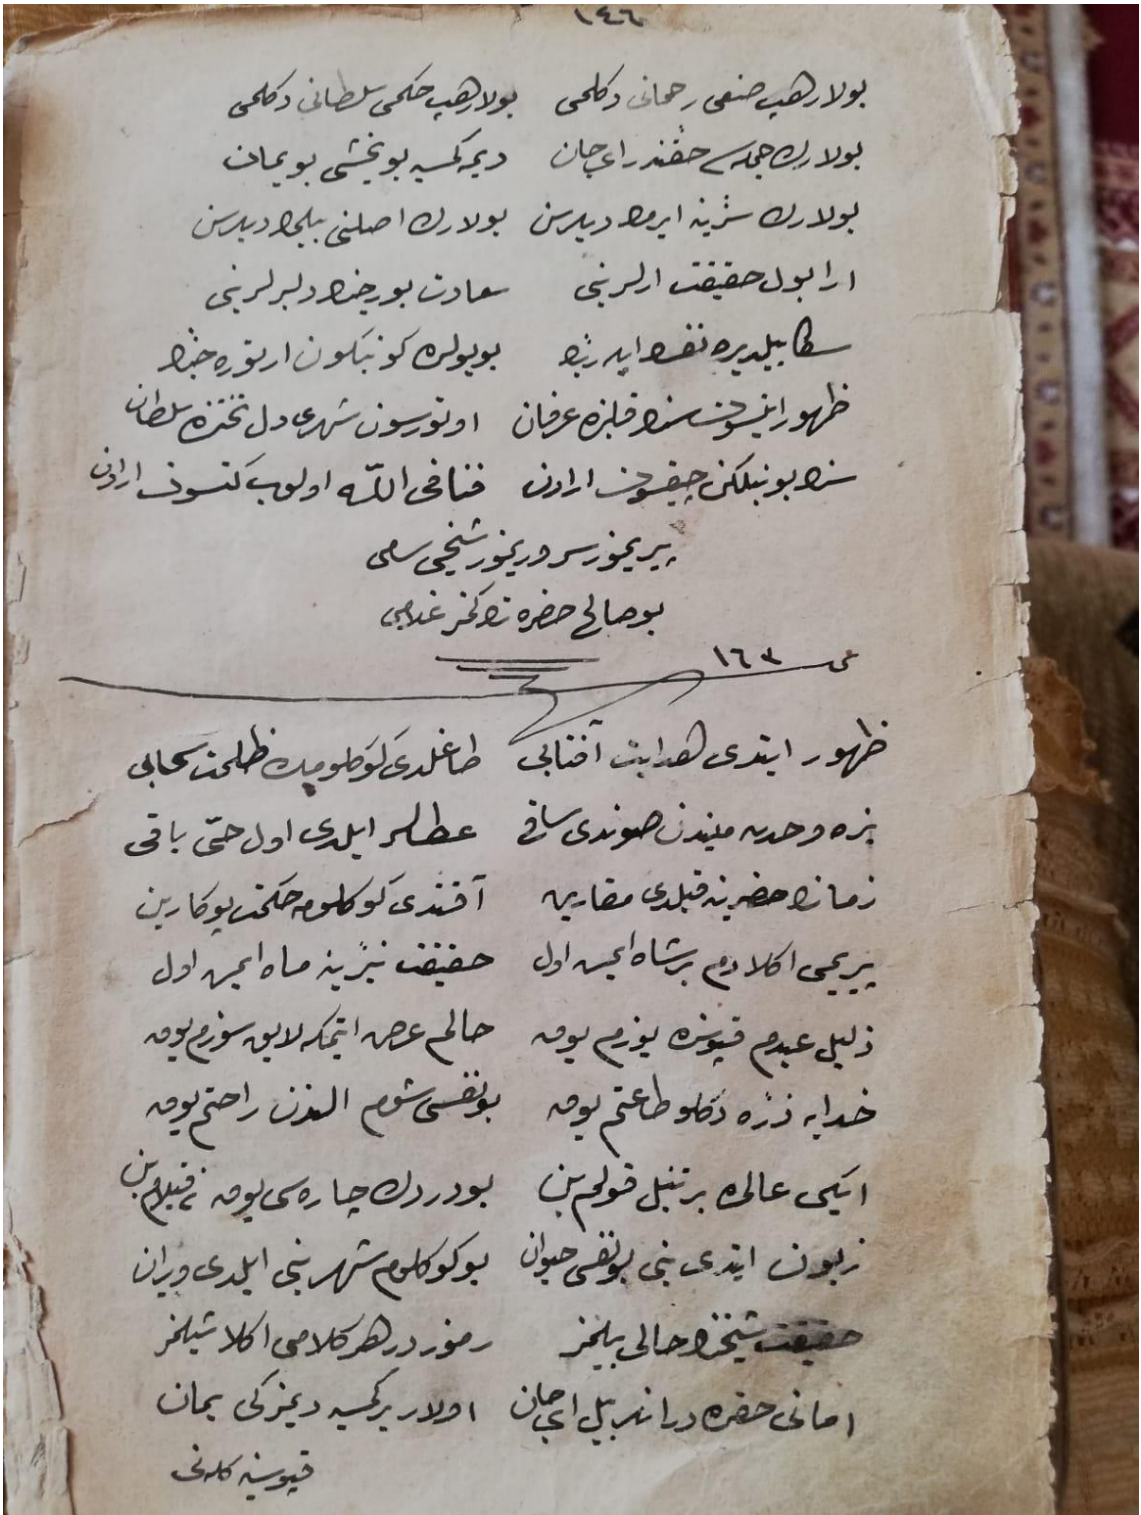 ١٤٦
بولارهپ صنعی رحمانی دكلمی بولارهپ حكمی سلطانی دكلمی
بولارك جمله سی حقندر ای جان دیمه كمسیه بو یخشی بو یمان
بولارك سرّینه ایرمك دیلرسن بولارك اصلنی بیلمك دیلرسن
ارا بول حقیقت ارلرینی سعادت بورجنده دلبرلرینی
سكا بیلدیره نفسك ایله ربّك بو یولده كو
ظهور ایتسون سنده عرفان اوتورسون شهری دل تختنده سلطان
سنده بو بنلكك چیقسون ارادن فنا فی اللّه اولوب كتسون ارادن
پیریمز سروریمز شیخی سامی
بو صالح حضرته غلامی
١٦٣
ظهور ایتدی هدایت آفتابی طاغلدی كوكلومیك ظلمت سحابی
بزه وحدت میندن صوندی ساقی عطالر ایلدی اول حیّ باقی
زمانك خضرینه قیلدی مقارین آقتدی كوكلومه حكمت پوكارین
پیریمی اكلادم بر شاه ایمش اول حقیقت نیّرینه ماه ایمش اول
ذلیل عبدم قپوڭده یوزم یوق حالم عرض ایتمكه لایق سوزم یوق
خدایه ذرّه دكلو طاعتم یوق بو نفسی شوم الندن راحتم یوق
ایكی عالمده بر تنبل قولم بن بو دردك چاره سی یوق نه قیلام بن
زبون ایتدی بنی بو نفسی حیوان بو كوكلوم شهرینی ایلدی ویران
حقیقت شیخنك حالی بیلنمز رموزدر هر كلامی اكلاشیلمز
امانی حضرتدراندن بیل ای جان اولار بر كمسیه دیمز كی یمان
قپوسینه كلنی